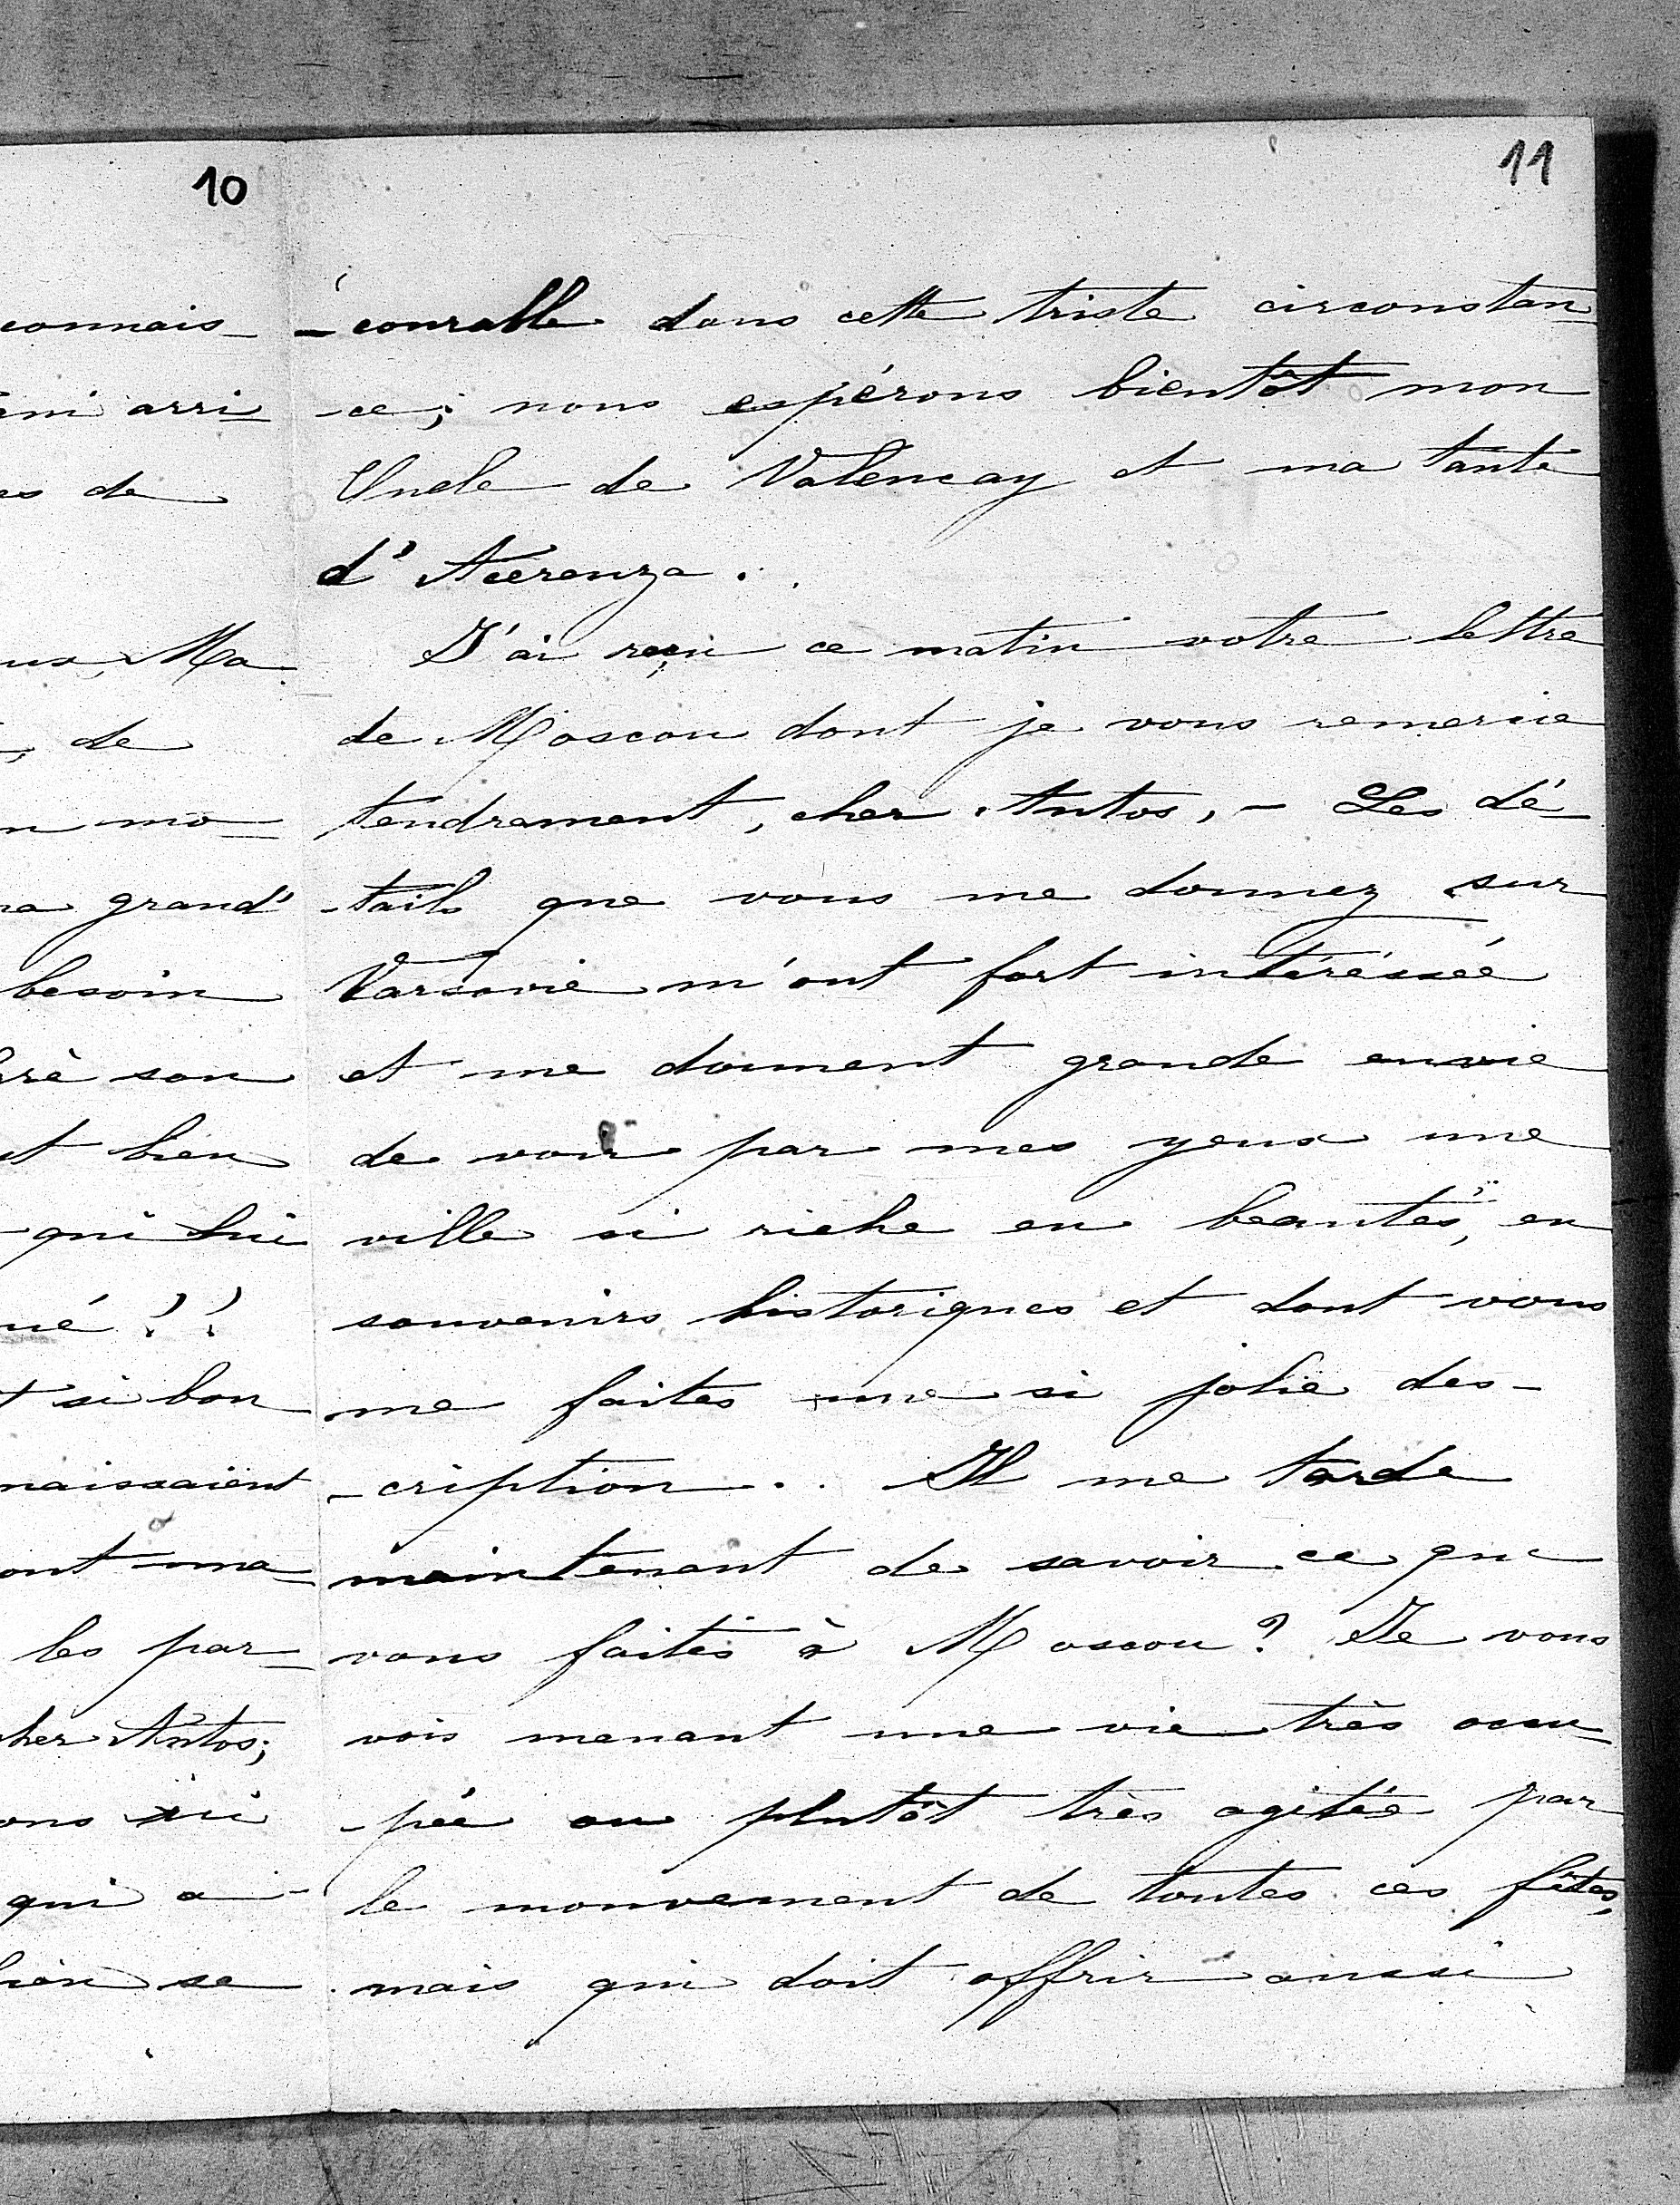 10
connais-
ami arri-
de
Ma
, de
mo-
grand'
besoin
son
bien
qui lui
??
si bon
naissaient
ont ma-
les par-
cher Antos;
ici
qui a-
bien se
11
-courable dans cette triste circonstan-
-ce; nous espérons bientôt mon
Uncle de Valencay et ma tante
d'Acerenza.
J'ai reçu ce matin votre lettre
de Moscou dont je vous remercie
tendrement, cher Antos, - Les dé-
-tails que vous me donnez sur
Varsovie m'ont fort intéréssée
et me donnent grande envie
de voir par mes yeux une
ville si riche en beautés, en
souvenirs historiques et dont vous
me faites une si jolie des-
-cription.. Il me tarde
maintenant de savoir ce que
vous faites à Moscou? Je vous
vois menant une vie très occu-
-pée ou plutôt très agitée par
le mouvement de toutes ces fêtes,
mais qui doit offrir aussi